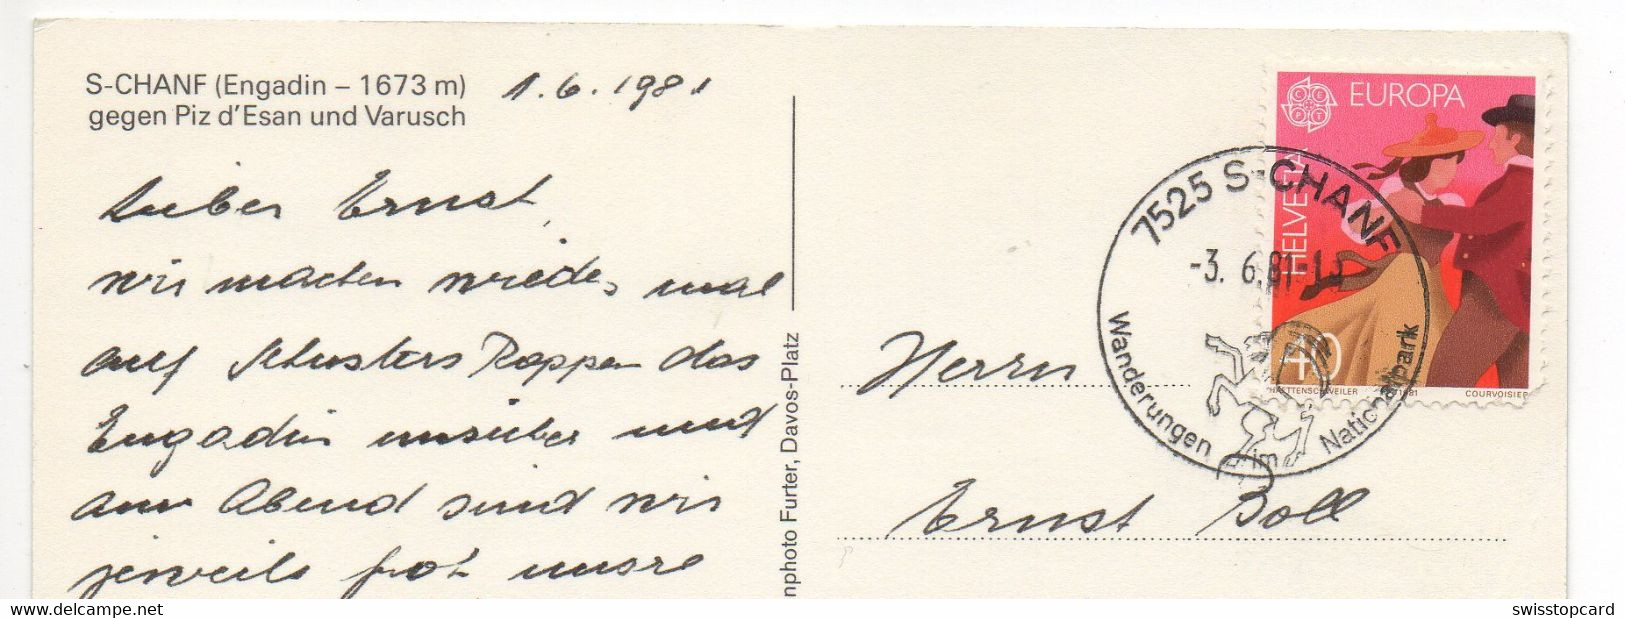 S-CHANF (Engadin – 1673 m)
gegen Piz d'Esan und Varusch
1.6.1981
Lieber Ernst,
wir machen wieder mal
auf Schusters Rappen das
Engadin unsicher und
am Abend sind wir
jeweils froh unsre
nphoto Furter, Davos-Platz
EUROPA
HELVETIA
CEPT
40
HAETTENSCHWEILER 1981 COURVOISIER
7525 S-CHANF
-3. 6.81-1
Wanderungen im Nationalpark
Herrn
Ernst Boll
delcampe.net
swisstopcard